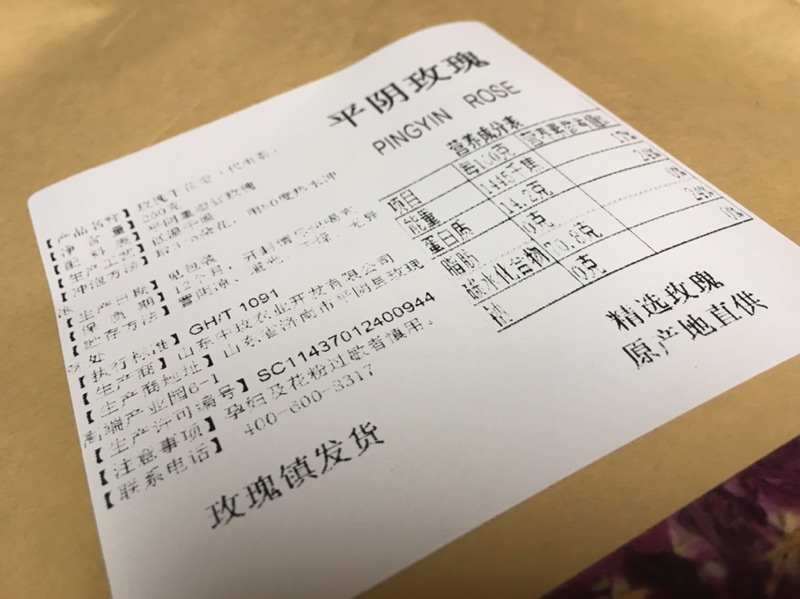 平阴玫瑰
PINGYIN ROSE
【产品名称】玫瑰干花蕾（代用茶）
【净含量】250克
【配料表】平阴重瓣红玫瑰
【生产工艺】低温干燥
【冲泡方法】
【生产日期】见包装
【保质期】12个月，
【贮存方法】
处
【执行标准】GH/T 1091
【生产商】山东中玫农业开发有限公司
【生产商地址】山东省济南市平阴县玫瑰
高端产业园6-1
【生产许可编号】SC11437012400944
【注意事项】孕妇及花粉过敏者慎用。
【联系电话】400-600-3317
玫瑰镇发货
营养成分表
项目 每100克 营养素参考值%
能量 1445千焦 17%
蛋白质 14.2克 24%
脂肪 0克 0%
碳水化合物 70.8克 24%
钠 0克 0%
精选玫瑰
原产地直供